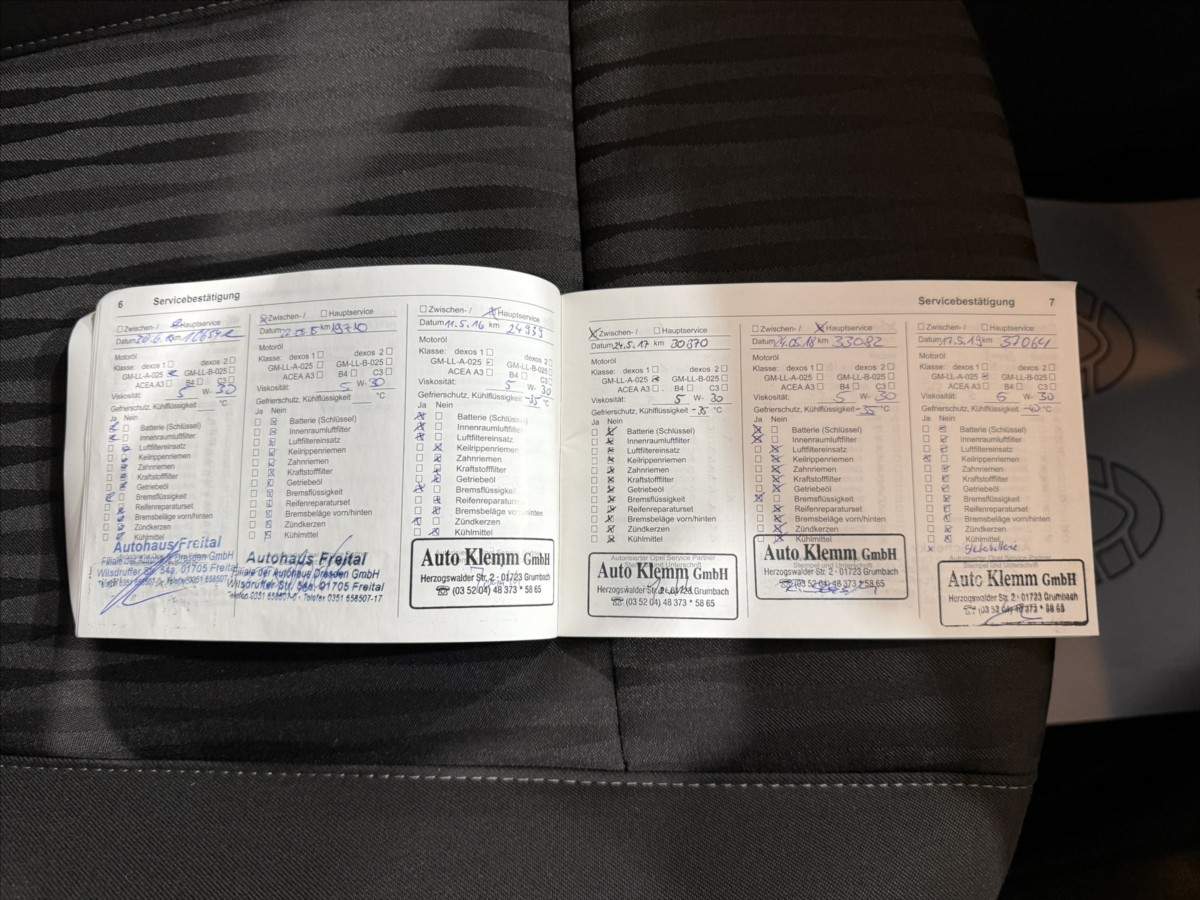 6 Servicebestätigung
Zwischen-/ Hauptservice
Datum km
Motoröl
Klasse: dexos 1 dexos 2
GM-LL-A-025 GM-LL-B-025
ACEA A3 B4 C3
Viskosität: 5 W- 30
Gefrierschutz, Kühlflüssigkeit °C
Ja Nein
Batterie (Schlüssel)
Innenraumluftfilter
Luftfiltereinsatz
Keilrippenriemen
Zahnriemen
Kraftstofffilter
Getriebeöl
Bremsflüssigkeit
Reifenreparaturset
Bremsbeläge vorn/hinten
Zündkerzen
Kühlmittel
Autohaus Freital
Filiale der Autohaus Dresden GmbH
Wilsdruffer Str. 54a, 01705 Freital
Zwischen-/ Hauptservice
Datum km
Motoröl
Klasse: dexos 1 dexos 2
GM-LL-A-025 GM-LL-B-025
ACEA A3 B4 C3
Viskosität: 5 W- 30
Gefrierschutz, Kühlflüssigkeit °C
Ja Nein
Batterie (Schlüssel)
Innenraumluftfilter
Luftfiltereinsatz
Keilrippenriemen
Zahnriemen
Kraftstofffilter
Getriebeöl
Bremsflüssigkeit
Reifenreparaturset
Bremsbeläge vorn/hinten
Zündkerzen
Kühlmittel
Autohaus Freital
Filiale der Autohaus Dresden GmbH
Wilsdruffer Str. 54a, 01705 Freital
Telefon 0351 658507-0 - Telefax 0351 658507-17
Zwischen-/ Hauptservice
Datum 11.5.16 km 24939
Motoröl
Klasse: dexos 1 dexos 2
GM-LL-A-025 GM-LL-B-025
ACEA A3 B4 C3
Viskosität: 5 W- 30
Gefrierschutz, Kühlflüssigkeit -35 °C
Ja Nein
Batterie (Schlüssel)
Innenraumluftfilter
Luftfiltereinsatz
Keilrippenriemen
Zahnriemen
Kraftstofffilter
Getriebeöl
Bremsflüssigkeit
Reifenreparaturset
Bremsbeläge vorn/hinten
Zündkerzen
Kühlmittel
Auto Klemm GmbH
Herzogswalder Str. 2 - 01723 Grumbach
☎ (03 52 04) 48 373 * 58 65
Servicebestätigung 7
Zwischen-/ Hauptservice
Datum 24.5.17 km 30370
Motoröl
Klasse: dexos 1 dexos 2
GM-LL-A-025 GM-LL-B-025
ACEA A3 B4 C3
Viskosität: 5 W- 30
Gefrierschutz, Kühlflüssigkeit -35 °C
Ja Nein
Batterie (Schlüssel)
Innenraumluftfilter
Luftfiltereinsatz
Keilrippenriemen
Zahnriemen
Kraftstofffilter
Getriebeöl
Bremsflüssigkeit
Reifenreparaturset
Bremsbeläge vorn/hinten
Zündkerzen
Kühlmittel
Autorisierter Opel Service Partner
Stempel und Unterschrift
Auto Klemm GmbH
Herzogswalder Str. 2 - 01723 Grumbach
☎ (03 52 04) 48 373 * 58 65
Zwischen-/ Hauptservice
Datum 24.05.18 km 33082
Motoröl
Klasse: dexos 1 dexos 2
GM-LL-A-025 GM-LL-B-025
ACEA A3 B4 C3
Viskosität: 5 W- 30
Gefrierschutz, Kühlflüssigkeit -35 °C
Ja Nein
Batterie (Schlüssel)
Innenraumluftfilter
Luftfiltereinsatz
Keilrippenriemen
Zahnriemen
Kraftstofffilter
Getriebeöl
Bremsflüssigkeit
Reifenreparaturset
Bremsbeläge vorn/hinten
Zündkerzen
Kühlmittel
Auto Klemm GmbH
Stempel und Unterschrift
Herzogswalder Str. 2 - 01723 Grumbach
☎ (03 52 04) 48 373 * 58 65
Zwischen-/ Hauptservice
Datum 17.5.19 km 37064
Motoröl
Klasse: dexos 1 dexos 2
GM-LL-A-025 GM-LL-B-025
ACEA A3 B4 C3
Viskosität: 5 W- 30
Gefrierschutz, Kühlflüssigkeit -40 °C
Ja Nein
Batterie (Schlüssel)
Innenraumluftfilter
Luftfiltereinsatz
Keilrippenriemen
Zahnriemen
Kraftstofffilter
Getriebeöl
Bremsflüssigkeit
Reifenreparaturset
Bremsbeläge vorn/hinten
Zündkerzen
Kühlmittel
Autorisierter Opel Service Partner
Stempel und Unterschrift
Auto Klemm GmbH
Herzogswalder Str. 2 - 01723 Grumbach
☎ (03 52 04) 48 373 * 58 65